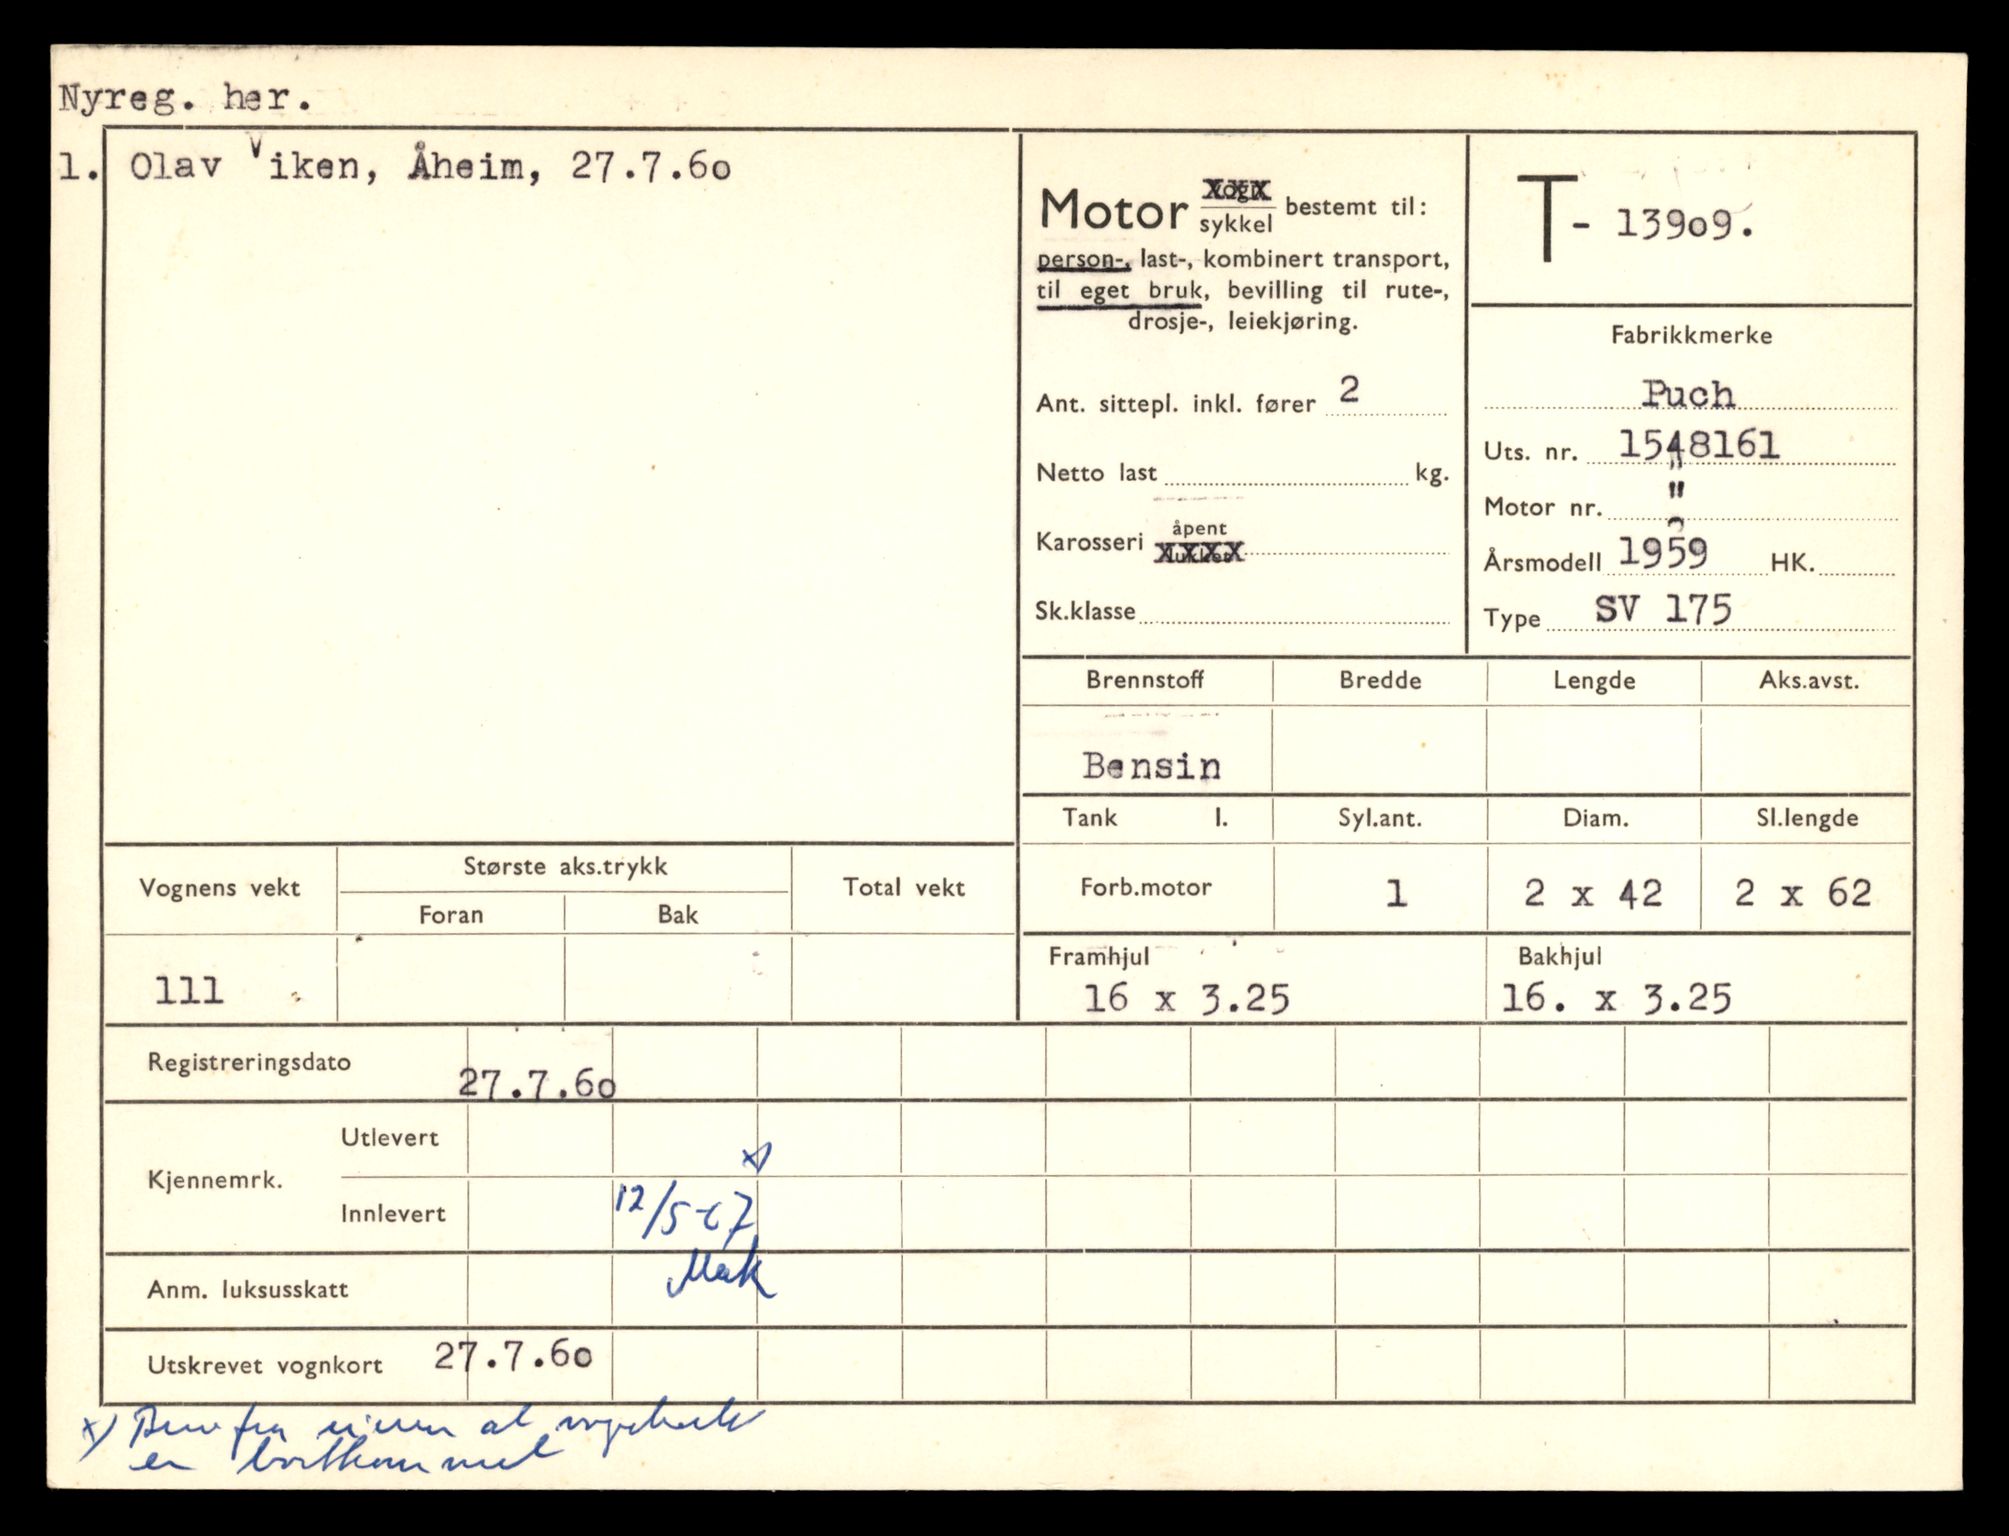 Nyreg. her.
1. Olav Viken, Åheim, 27.7.60
Motor vogn sykkel bestemt til:
person-, last-, kombinert transport,
til eget bruk, bevilling til rute-,
drosje-, leiekjøring.
Ant. sittepl. inkl. fører 2
Netto last kg.
Karosseri åpent lukket
Sk.klasse
T- 13909.
Fabrikkmerke
Puch
Uts. nr. 1548161
Motor nr. "
Årsmodell 1959 HK.
Type SV 175
Brennstoff Bredde Lengde Aks.avst.
Bensin
Tank l. Syl.ant. Diam. Sl.lengde
Forb.motor 1 2 x 42 2 x 62
Framhjul Bakhjul
16 x 3.25 16. x 3.25
Vognens vekt Største aks.trykk Total vekt
Foran Bak
111
Registreringsdato 27.7.60
Kjennemrk. Utlevert
x)
Innlevert 12/5-67
Mak
Anm. luksusskatt
Utskrevet vognkort 27.7.60
x) fra at
er bortkommet